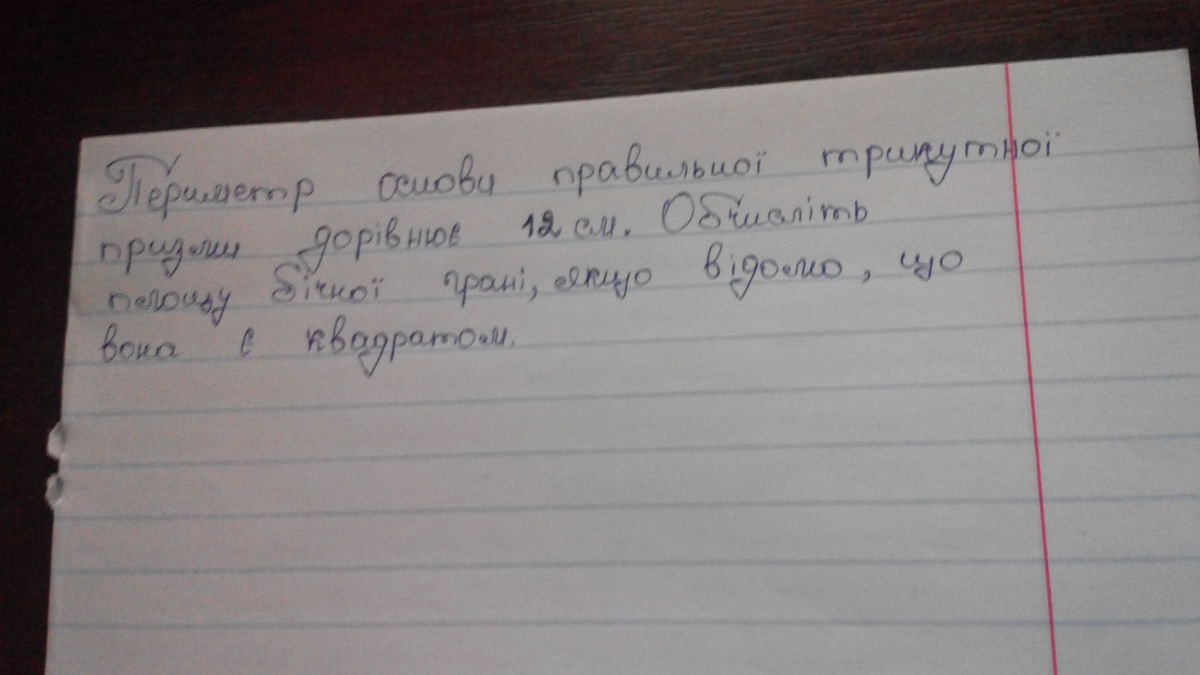 Периметр основи правильної трикутної
призми дорівнює 12 см. Обчисліть
площу бічної грані, якщо відомо, що
вона є квадратом.